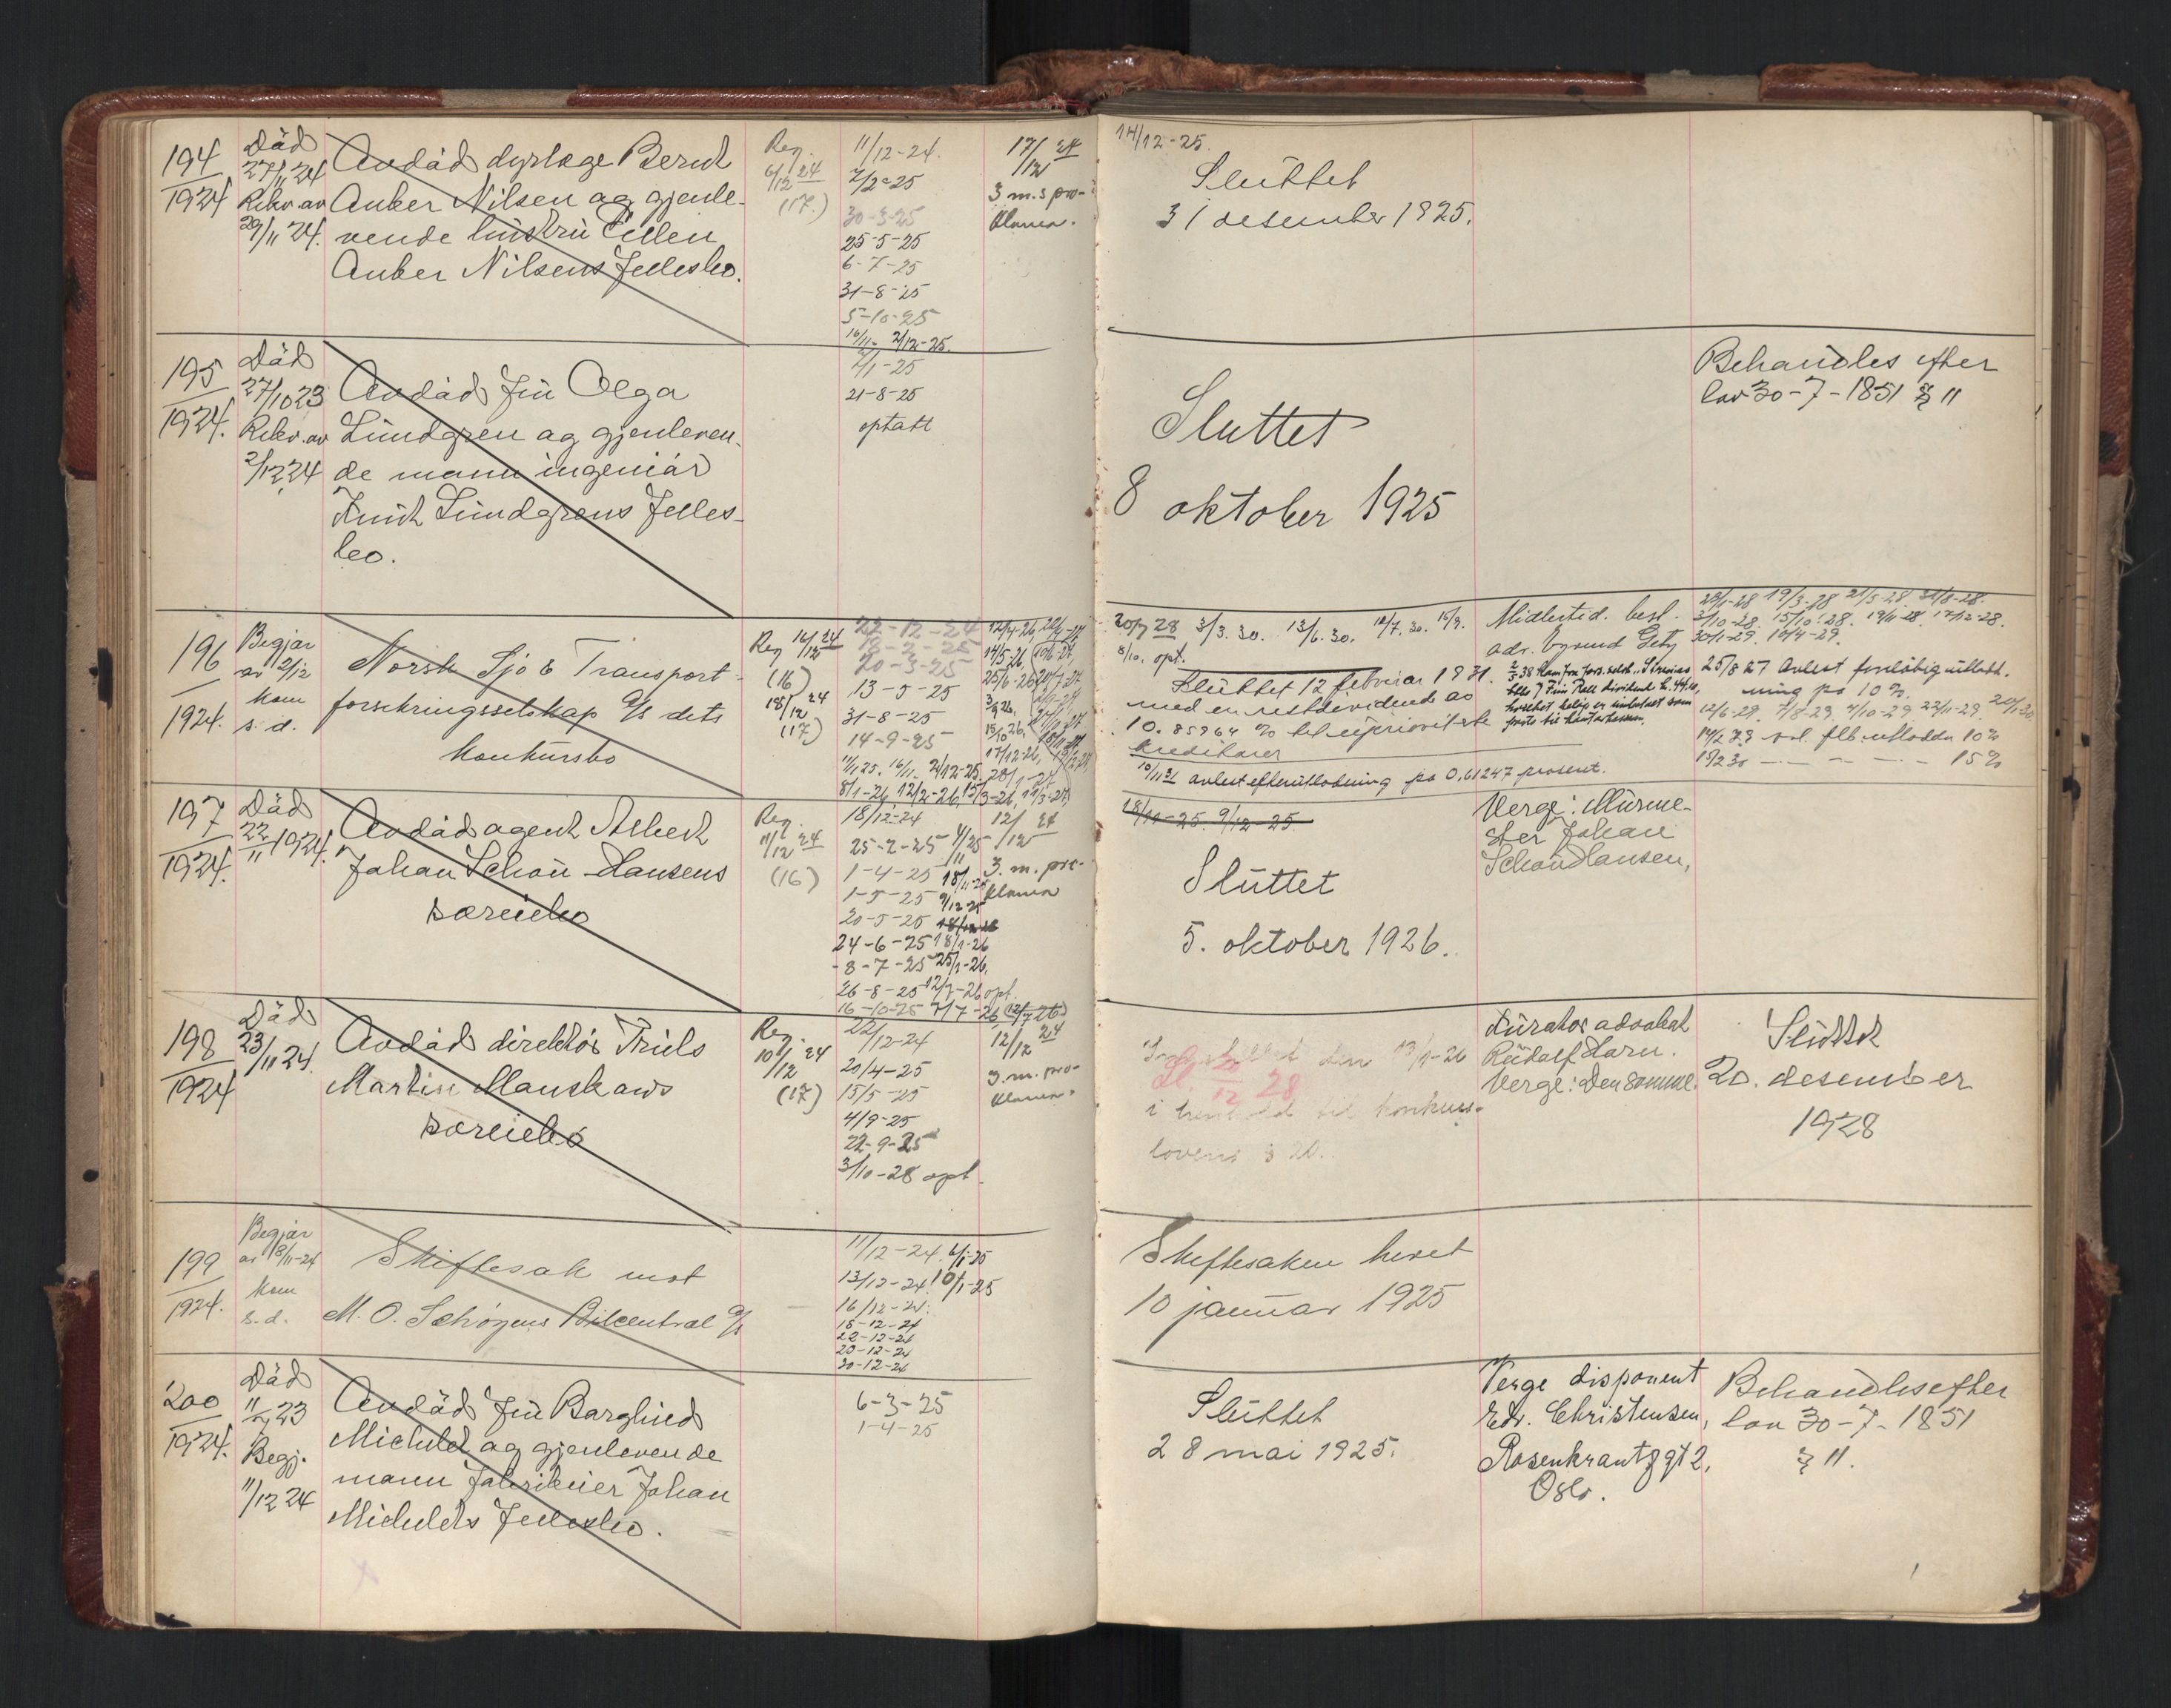 194
1924
Död
27/11 24
Rekv. av
29/11 24.
Avdöd dyrlæge Bernt
Anker Nilsen og gjenle-
vende hustru Ellen
Anker Nilsens Fellesbo.
Reg.
6/12 24
(17.)
11/12-24.
7/2-25
30-3-25
25-5-25
6-7-25
31-8-25
5-10-25
16/11- 2/12-25.
17/12 24
3 m.s pro-
klama.
14/12-25.
Sluttet
31 desember 1925.
195
1924.
Död
27/10 23
Rekv. av
2/12 24
Avdöd fru Olga
Lundgren og gjenleven-
de mann ingeniör
Knut Lundgrens Felles-
bo.
2/1-25
21-8-25
optatt
Sluttet
8 oktober 1925
Behandles efter
lov 30-7-1851 § 11
196
1924.
Begjær
av 2/12
kom
s. d.
Norsk Sjö & Transport-
forsikringsselskap A/S dets
konkursbo
Reg 16/12 24
(16)
18/12 24
(17)
22-12-24
18-2-25
20-3-25
13-5-25
31-8-25
14-9-25
16/11- 2/12-25.
8/1-26, 12/2-26,
12/4-26,
14/5-26,
25/6-26
17/12-26,
20/7 28 3/3. 30. 13/6. 30. 12/7. 30. 15/9.
8/10. opt.
Sluttet 12 februar 1931.
med en restdividende av
10.85964 % til uprioriterte
kreditorer
10/11 31 avlest efterutlodning på 0,61247 prosent.
Midlertid. best.
adv. Öyvind Getz
19/3-28 21/5-28
3/10-28. 15/10-28. 19/11-28. 17/12-28.
30/1-29. 16/4-29.
25/8 27 Avlest foreløbig utlodd-
ning på 10 %.
12/6-29. 7/8-29. 4/10-29. 22/11-29. 20/1-30
15 %
197
1924.
Död
22/11 1924.
Avdöd agent Albert
Johan Schou-Hansens
særeiebo
Reg.
11/12 24
(16)
18/12-24
25-2-25
1-4-25
1-5-25 9/12 25
20-5-25
24-6-25 18/1-26
8-7-25 25/1-26.
26-8-25 12/7-26 opt.
16-10-25
12/12 24
3. m. pro-
klama
18/11-25. 9/12-25.
Sluttet
5. oktober 1926.
Verge: Murme-
ster Johan
Schou Hansen,
198
1924
Död
23/11 24.
Avdöd direktör Truls
Martin Manskaws
særeiebo
Reg.
10/12 24
(17)
22/12-24
20/4-25
15/5-25
4/9-25
22-9-25
3/10-28 opt.
12/12 24
3. m. pro-
klama.
den 19/1-26
Sl. 20/12 28
i henhold til konkurs-
lovens § 20.
Kurator advokat
Rudolf Horn.
Verge: Den samme.
Sluttet
20. desember
1928
199
1924.
Begjær
av 18/11-24
kom
s. d.
Skiftesak mot
M. O. Schøyens Bilcentral A/S
11/12-24. 6/1-25
13/12-24. 10/1-25
16/12-24.
18-12-24
22-12-24
23-12-24
30-12-24
Skiftesaken hevet
10 januar 1925
200
1924.
Död
11/2 23
Begj.
11/12 24
Avdöd fru Borghild
Michelet og gjenlevende
mann fabrikeier Johan
Michelets Fellesbo.
6-3-25
1-4-25
Sluttet
28 mai 1925.
Verge disponent
Edv. Christensen,
Rosenkrantzgt 2,
Oslo.
Behandles efter
lov 30-7-1851
§ 11.